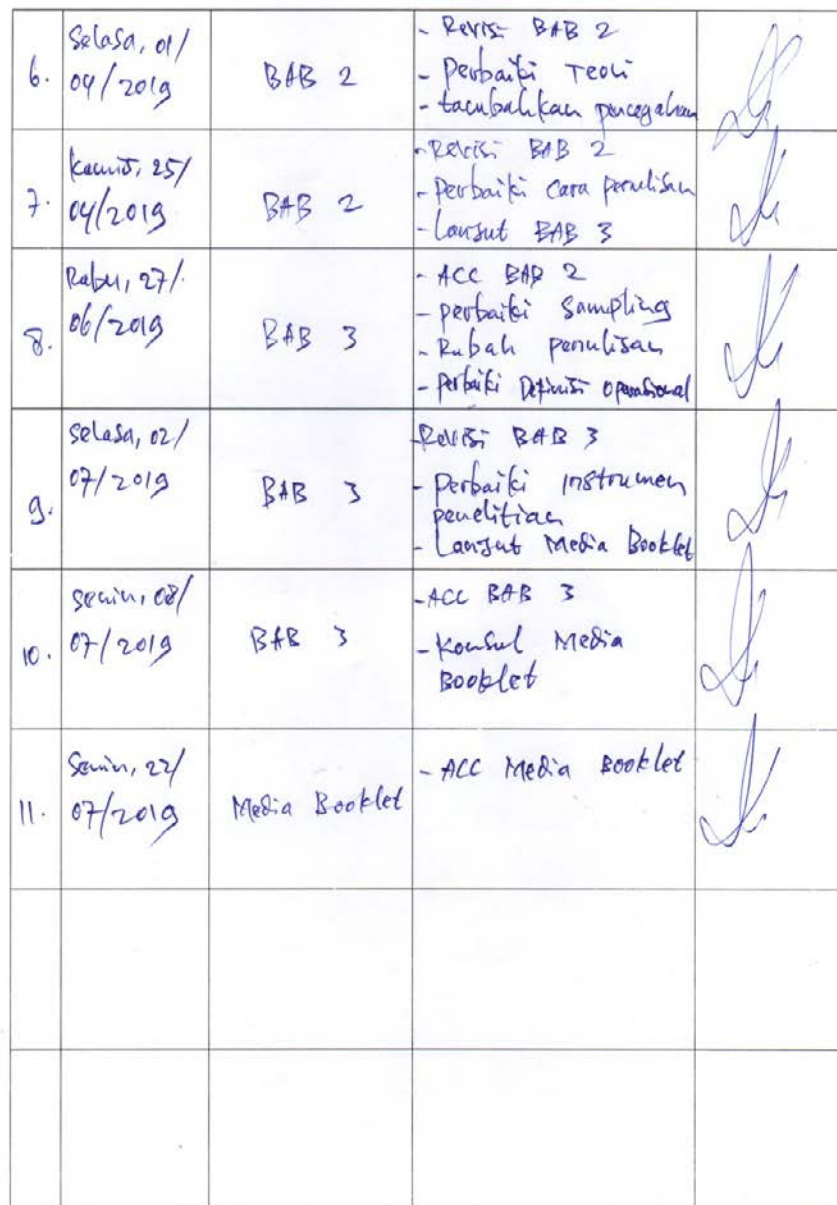 6.
Selasa, 01/
04/2019
BAB 2
- Revisi BAB 2
- Perbaiki Teori
- tambahkan pencegahan
7.
Kamis, 25/
04/2019
BAB 2
- Revisi BAB 2
- Perbaiki Cara penulisan
- Lanjut BAB 3
8.
Rabu, 27/
06/2019
BAB 3
- ACC BAB 2
- perbaiki Sampling
- Rubah penulisan
- Perbaiki Definisi Operasional
9.
Selasa, 02/
07/2019
BAB 3
- Revisi BAB 3
- Perbaiki instrumen
penelitian
- Lanjut Media Booklet
10.
Senin, 08/
07/2019
BAB 3
- ACC BAB 3
- Konsul Media
Booklet
11.
Senin, 22/
07/2019
Media Booklet
- ACC Media Booklet